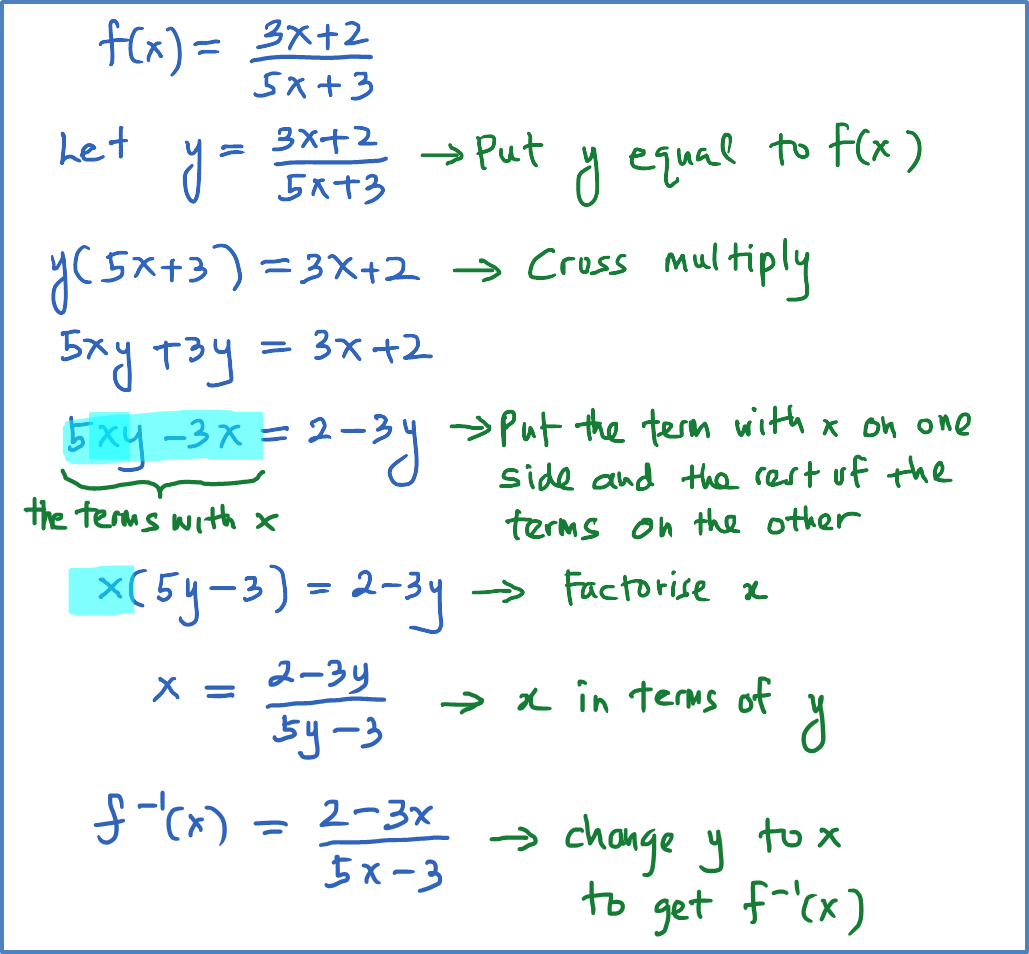 f(x) = (3x+2)/(5x+3)
Let y = (3x+2)/(5x+3) → Put y equal to f(x)
y(5x+3) = 3x+2 → Cross multiply
5xy + 3y = 3x+2
5xy - 3x = 2-3y → Put the term with x on one
side and the rest of the
the terms with x
terms on the other
x(5y-3) = 2-3y → Factorise x
x = (2-3y)/(5y-3) → x in terms of y
f⁻¹(x) = (2-3x)/(5x-3) → change y to x
to get f⁻¹(x)